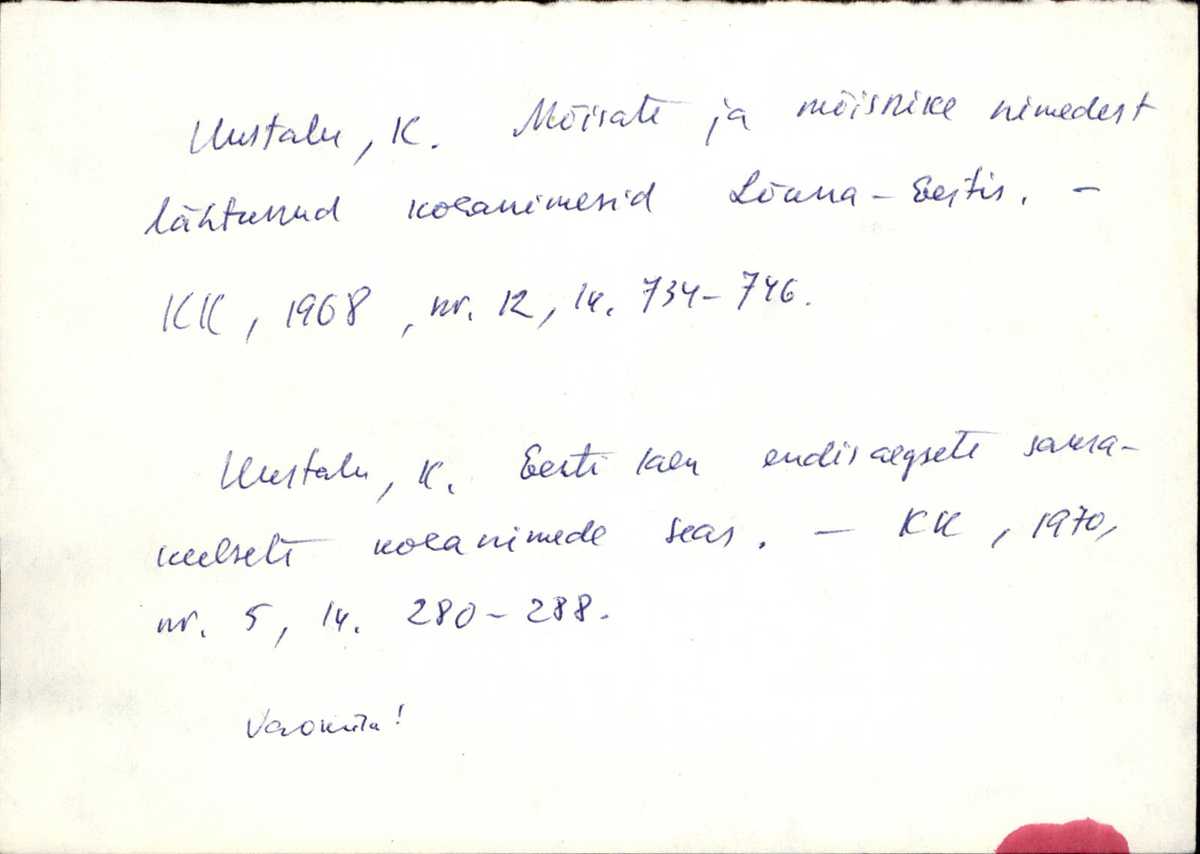 Uustalu, K. Mõisate ja mõisnike nimedest
lähtunud kohanimesid Lõuna-Eestis. –
KK, 1968, nr. 12, lk. 734–746.
Uustalu, K. Eesti keel endisaegsete saksa-
keelsete kohanimede seas. – KK, 1970,
nr. 5, lk. 280–288.